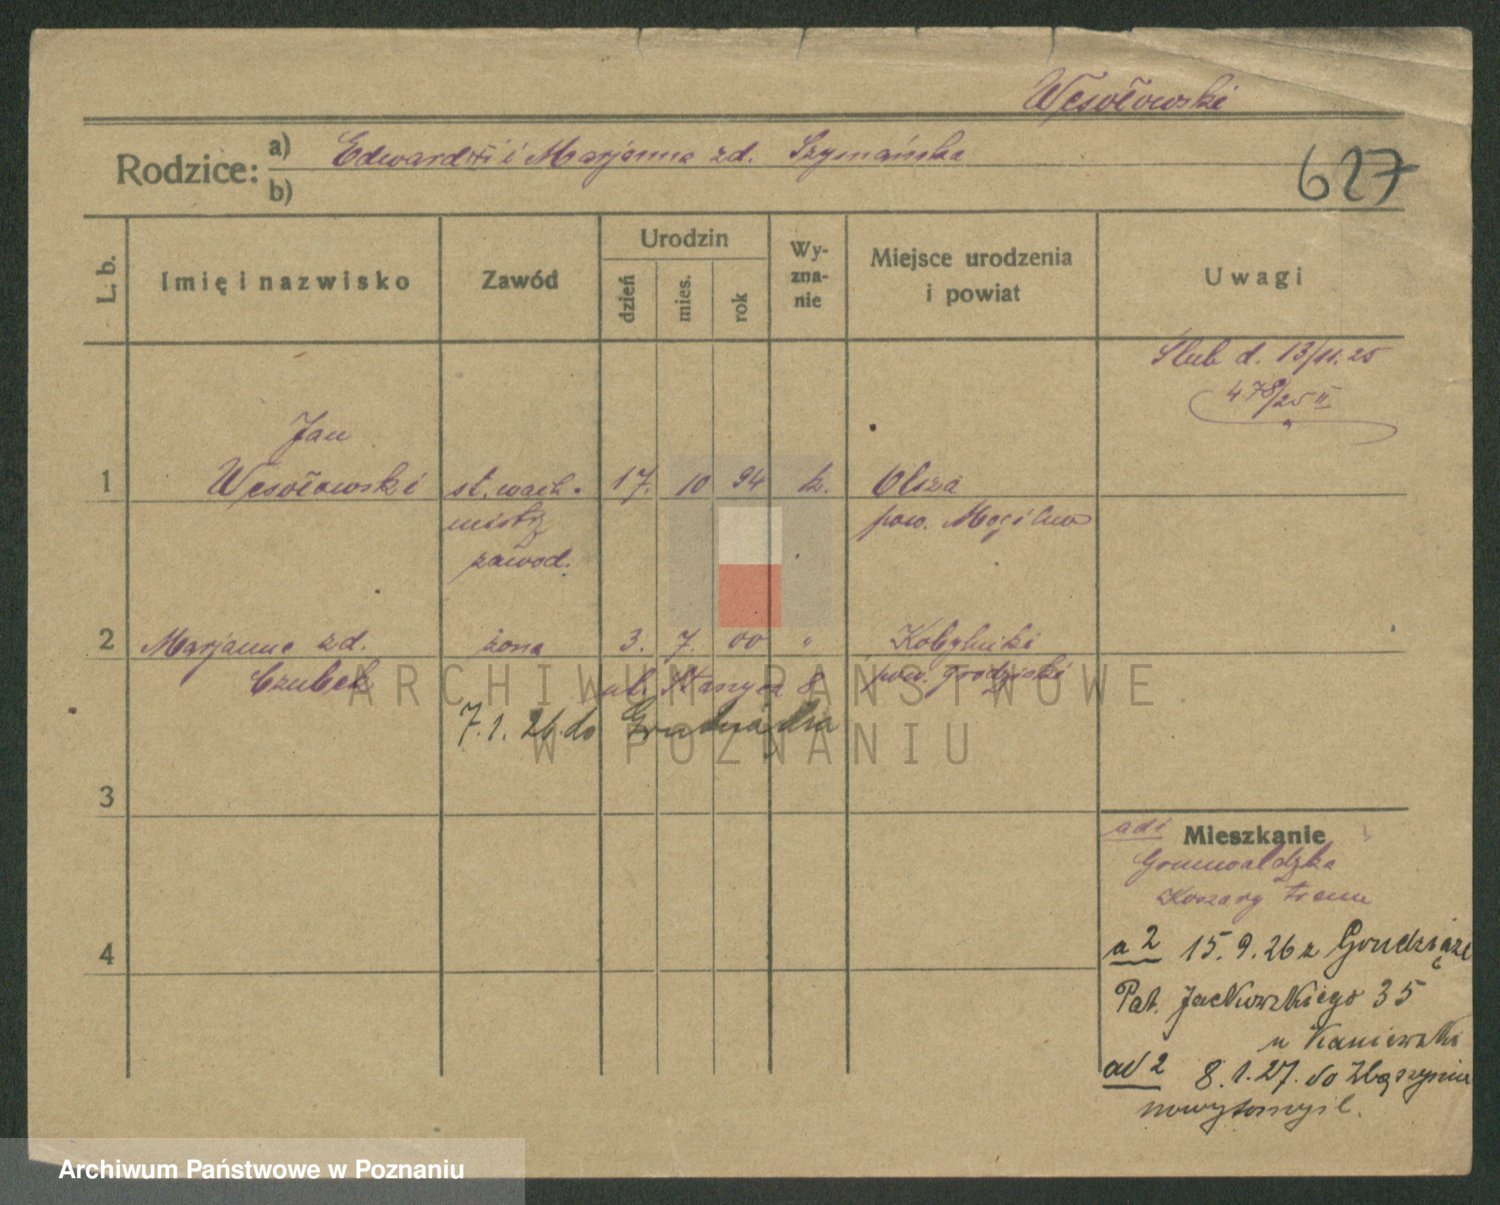 Wesołowski
Rodzice: a) Edward i Marjanna zd. Szymańska
b)
627
L. b.
Imię i nazwisko
Zawód
Urodzin
dzień
mies.
rok
Wy-
zna-
nie
Miejsce urodzenia
i powiat
Uwagi
Ślub d. 13/11.25
478/25 II
Jan
1 Wesołowski st. wach- 17. 10 94 k. Olsza
mistrz pow. Mogilno
zawod.
2 Marjanna zd. żona 3. 7. 00 " Kobylniki
Czubek ul. 8 pow. grodziski
7.1.26 do Grudziądza
3
4
ad 1 Mieszkanie
Grunwaldzka
Koszary trenu
a 2 15.9.26 z Grudziądz
Pat. Jackowskiego 35
u Kaniewski
ad 2 8.1.27. do Zbąszynia
nowytomyśl.
ARCHIWUM PAŃSTWOWE
W POZNANIU
Archiwum Państwowe w Poznaniu